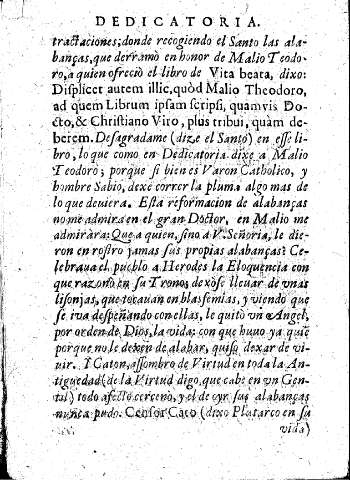 DEDICATORIA.
tractaciones; donde recogiendo el Santo las ala-
banças, que derramò en honor de Malio Teodo-
ro, a quien ofreciò el libro de Vita beata, dixo:
Displicet autem illic, quòd Malio Theodoro,
ad quem Librum ipsam scripsi, quamvis Do-
cto, & Christiano Viro, plus tribui, quàm de-
berem. Desagradame (dize el Santo) en esse li-
bro, lo que como en Dedicatoria dixe a Malio
Teodoro; porque si bien es Varon Catholico, y
hombre Sabio, dexè correr la pluma algo mas de
lo que deuiera. Esta reformacion de alabanças
no me admira en el gran Doctor, en Malio me
admiràra: Que a quien, sino a V. Señoria, le die-
ron en rostro jamas sus propias alabanças? Ce-
lebraua el pueblo a Herodes la Eloquencia con
que razonò en su Trono; dexòse lleuar de unas
lisonjas, que tocauan en blasfemias, y viendo que
se iva despeñando con ellas, le quitò un Angel,
por orden de Dios, la vida: con que huuo ya quiē
porque no le dexen de alabar, quiso dexar de vi-
uir. I Caton, assombro de Virtud en toda la An-
tiguedad (de la Virtud digo, que cabe en un Gen-
til) todo afecto cercenò, y el de oyr sus alabanças
nunca pudo. Censor Cato (dixo Plutarco en su
vida)